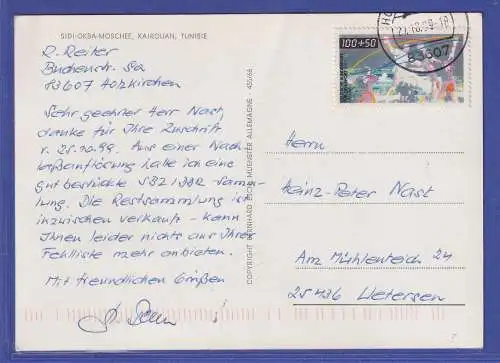 SIDI-OKBA-MOSCHEE, KAIROUAN, TUNISIE
R. Reiter
Buchenstr. 5a
83607 Holzkirchen
Sehr geehrter Herr Nast,
danke für Ihre Zuschrift
v. 25.10.99. Aus einer Nach-
laßauflösung hatte ich eine
gut bestückte SBZ/DDR-Samm-
lung. Die Restsammlung ist
inzwischen verkauft - kann
Ihnen leider nicht aus Ihrer
Fehlliste mehr anbieten.
Mit freundlichen Grüßen
COPYRIGHT BERNHARD ALLEMAGNE - 450/66
100+50
83607
Herrn
Heinz-Peter Nast
Am Mühlenteich 24
25436 Uetersen